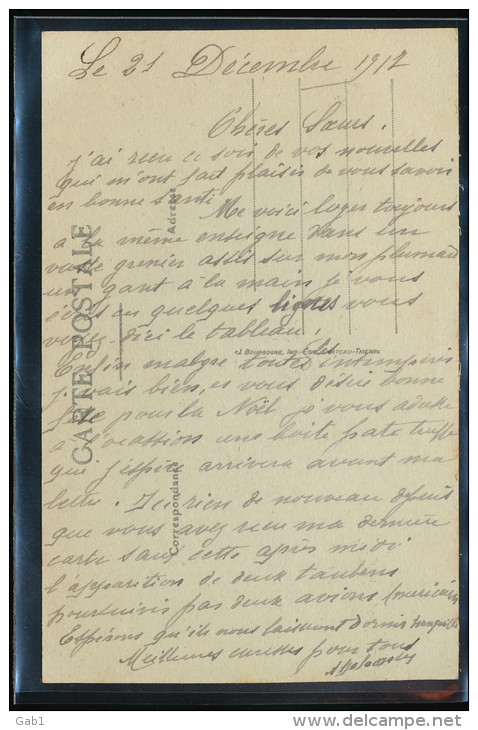 Le 21 Décembre 1917
Chères Sœurs.
J'ai recu ce soir de vos nouvelles
qui m'ont fait plaisir de vous savoir
en bonne santé
Me voici loger toujours
a la même enseigne dans un
vaste grenier assis sur mon plumard
un gant à la main je vous
écris ces quelques lignes vous
voyez d'ici le tableau.
Enfin malgre toutes les intemperis
je vais bien, et vous désire bonne
fête pour la Noël je vous adresse
a l'ocassion une boite pate truffe
que j'espère arrivera avant ma
lettre. Ici rien de nouveau depuis
que vous avez recu ma dernière
carte sauf cette après midi
l'apparition de deux taubens
poursuivis par deux avions (americains)
Espérons qu'ils nous laisseront dormir tranquille
Meilleures caresses pour tous
CARTE POSTALE
Correspondance
Adresse
J. Bourgogne, Château-Thierry
Gab1
www.delcampe.net